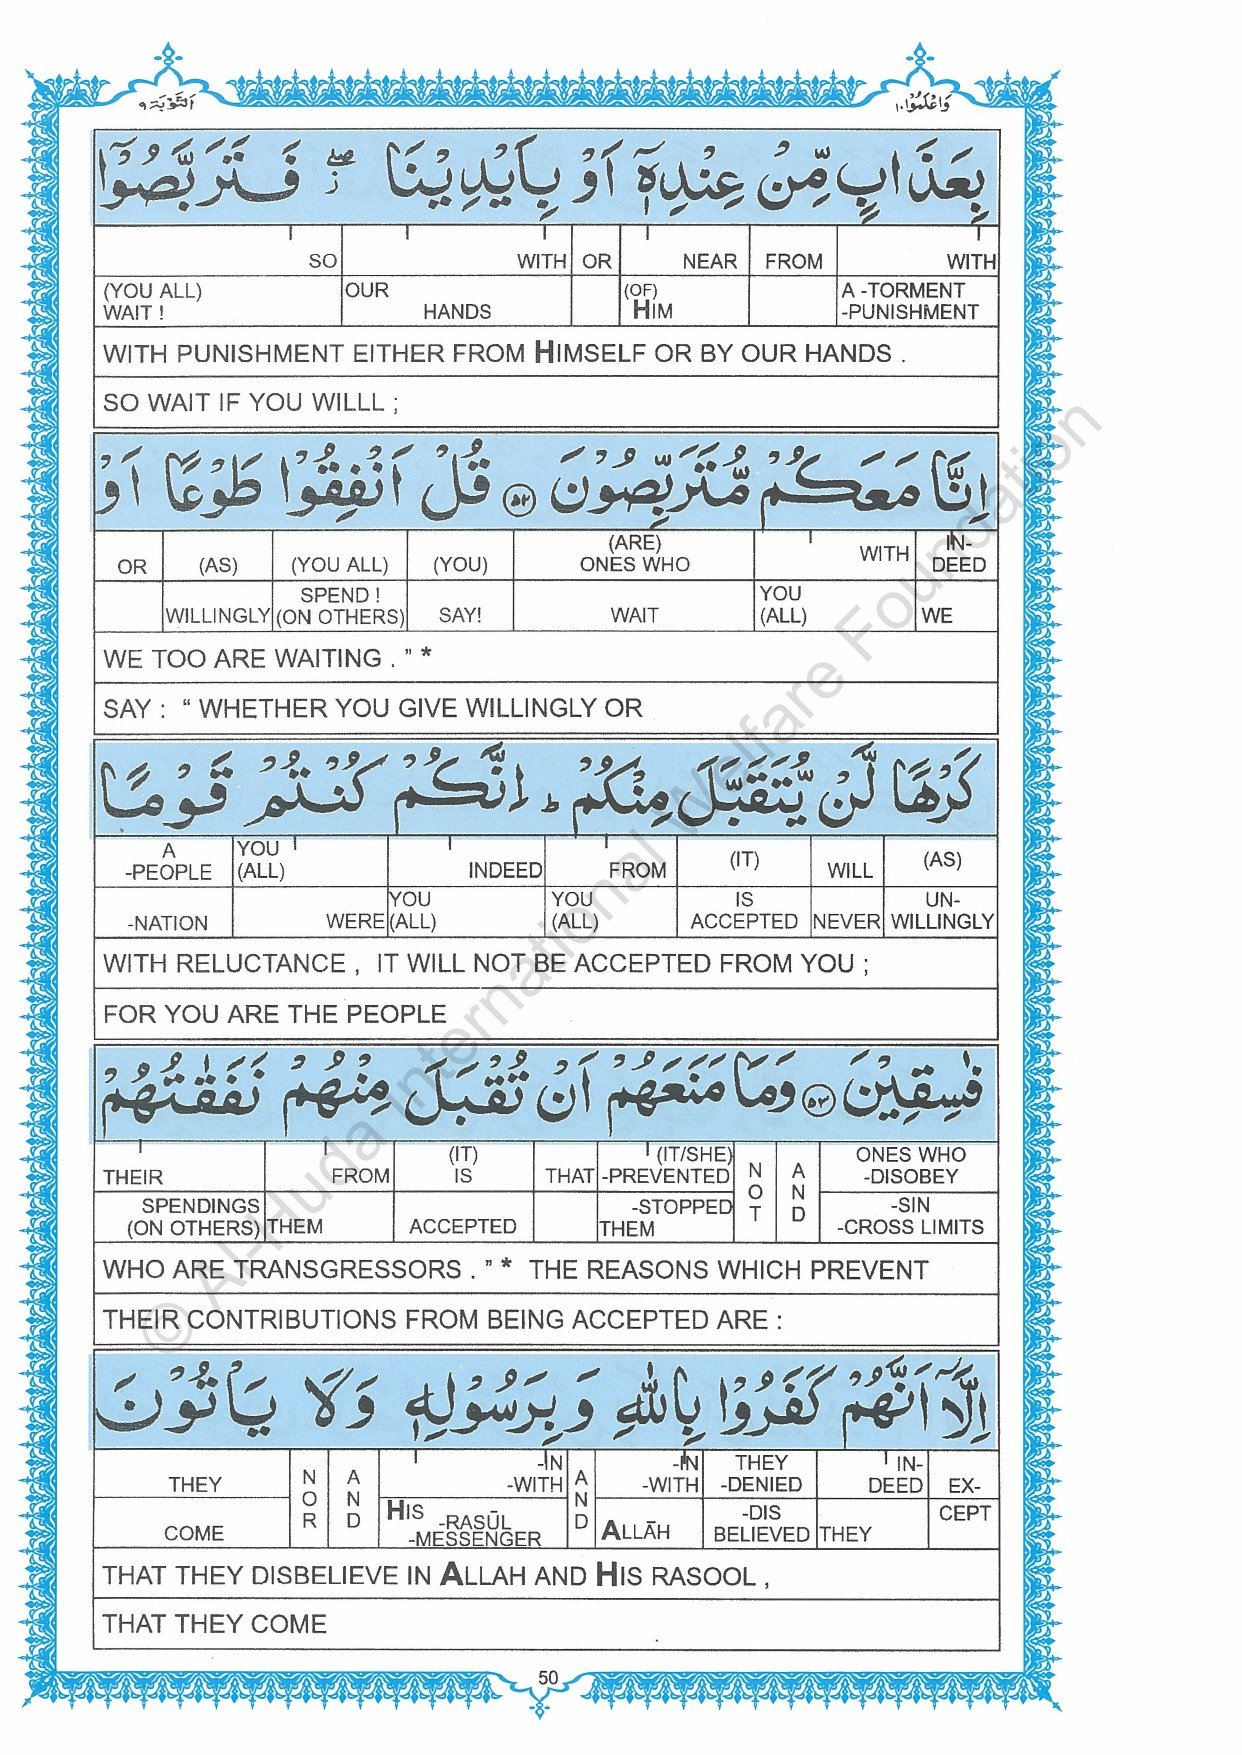 وَاعْلَمُوْا ١٠
اَلتَّوْبَة ٩
بِعَذَابٍ مِّنْ عِنْدِهٖٓ اَوْ بِاَيْدِيْنَا ۖ ز فَتَرَبَّصُوْٓا
SO WITH OR NEAR FROM WITH
(YOU ALL) WAIT ! OUR HANDS (OF) HIM A -TORMENT -PUNISHMENT
WITH PUNISHMENT EITHER FROM HIMSELF OR BY OUR HANDS .
SO WAIT IF YOU WILLL ;
اِنَّا مَعَكُمْ مُّتَرَبِّصُوْنَ ﴿۵۲﴾ قُلْ اَنْفِقُوْا طَوْعًا اَوْ
OR (AS) (YOU ALL) (YOU) (ARE) ONES WHO WITH IN-DEED
WILLINGLY SPEND ! (ON OTHERS) SAY! WAIT YOU (ALL) WE
WE TOO ARE WAITING . ” *
SAY : “ WHETHER YOU GIVE WILLINGLY OR
كَرْهًا لَّنْ يُّتَقَبَّلَ مِنْكُمْ ؕ اِنَّكُمْ كُنْتُمْ قَوْمًا
A -PEOPLE YOU (ALL) INDEED FROM (IT) WILL (AS)
-NATION WERE YOU (ALL) YOU (ALL) IS ACCEPTED NEVER UN-WILLINGLY
WITH RELUCTANCE , IT WILL NOT BE ACCEPTED FROM YOU ;
FOR YOU ARE THE PEOPLE
فٰسِقِيْنَ ﴿۵۳﴾ وَمَا مَنَعَهُمْ اَنْ تُقْبَلَ مِنْهُمْ نَفَقٰتُهُمْ
THEIR FROM (IT) IS THAT (IT/SHE) -PREVENTED NOT AND ONES WHO -DISOBEY
SPENDINGS (ON OTHERS) THEM ACCEPTED -STOPPED THEM -SIN -CROSS LIMITS
WHO ARE TRANSGRESSORS . ” * THE REASONS WHICH PREVENT
THEIR CONTRIBUTIONS FROM BEING ACCEPTED ARE :
اِلَّآ اَنَّهُمْ كَفَرُوْا بِاللّٰهِ وَبِرَسُوْلِهٖ وَلَا يَاْتُوْنَ
THEY NOR AND -IN -WITH AND -IN -WITH THEY -DENIED IN-DEED EX-
COME HIS -RASŪL -MESSENGER ALLĀH -DIS BELIEVED THEY CEPT
THAT THEY DISBELIEVE IN ALLAH AND HIS RASOOL ,
THAT THEY COME
50
© Al-Huda International Welfare Foundation